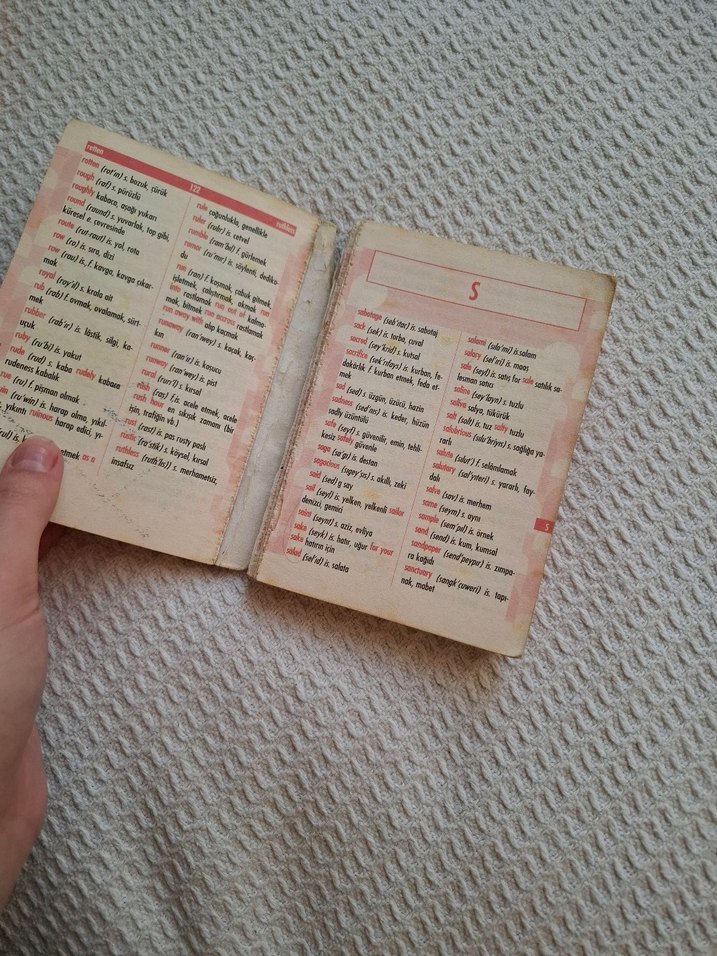 rotten
122
ruthless
rotten (rat'ın) s. bozuk, çürük
rough (raf) s. pürüzlü
roughly kabaca, aşağı yukarı
round (raund) s. yuvarlak, top gibi,
küresel e. çevresinde
route (rut-raut) is. yol, rota
row (ro) is. sıra, dizi
row (rau) is., f. kavga, kavga çıkar-
mak
royal (roy'ıl) s. krala ait
rub (rab) f. ovmak, ovalamak, sürt-
mek
rubber (rab'ır) is. lâstik, silgi, ka-
uçuk
ruby (ru'bi) is. yakut
rude (rud) s. kaba rudely kabaca
rudeness kabalık
rue (ru) f. pişman olmak
(ru'win) is. harap olma, yıkıl-
yıkıntı ruinous harap edici, yı-
etmek as a
rule çoğunlukla, genellikle
ruler (rulır) is. cetvel
rumble (ram'bıl) f. gürlemek
rumor (ru'mır) is. söylenti, dediko-
du
run (ran) f. koşmak, çabuk gitmek,
işletmek, çalıştırmak, akmak run
into rastlamak run out of kalma-
mak, bitmek run across rastlamak
run away with alıp kaçmak
runaway (ran'ıwey) s. kaçak, kaç-
kın
runner (ran'ır) is. koşucu
runway (ran'wey) is. pist
rural (rur'ıl) s. kırsal
rush (raş) f.is. acele etmek, acele
rush hour en sıkışık zamanı (bir
işin, trafiğin vb.)
rust (rast) is. pas rusty paslı
rustic (ras'tik) s. köysel, kırsal
ruthless (ruth'lıs) s. merhametsiz,
insafsız
S
sabotage (seb'ıtaj) is. sabotaj
sack (sek) is. torba, çuval
sacred (sey'krid) s. kutsal
sacrifice (sek'rıfays) is. kurban, fe-
dakârlık f. kurban etmek, feda et-
mek
sad (sed) s. üzgün, üzücü, hazin
sadness (sed'nıs) is. keder, hüzün
sadly üzüntülü
safe (seyf) s. güvenilir, emin, tehli-
kesiz safely güvenle
saga (sa'gı) is. destan
sagacious (sıgey'şıs) s. akıllı, zeki
said (sed) g say
sail (seyl) is. yelken, yelkenli sailor
denizci, gemici
saint (seynt) s. aziz, evliya
sake (seyk) is. hatır, uğur for your
sake hatırın için
salad (sel'ıd) is. salata
salami (sıla'mi) is.salam
salary (sel'ıri) is. maaş
sale (seyl) is. satış for sale satılık sa-
lesman satıcı
saline (sey'layn) s. tuzlu
saliva salya, tükürük
salt (salt) is. tuz salty tuzlu
salubrious (sılu'briyıs) s. sağlığa ya-
rarlı
salute (sılut') f. selâmlamak
salutary (sal'yıteri) s. yararlı, fay-
dalı
salve (sav) is. merhem
same (seym) s. aynı
sample (sem'pıl) is. örnek
sand (send) is. kum, kumsal
sandpaper (send'peypır) is. zımpa-
ra kağıdı
sanctuary (sangk'çuweri) is. tapı-
nak, mabet
S